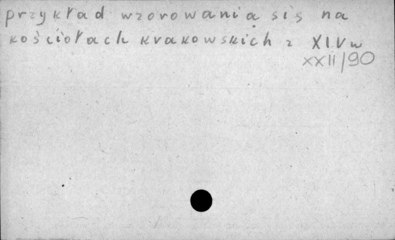 przykład wzorowania się na
kościołach krakowskich z XIV w
XXII/90